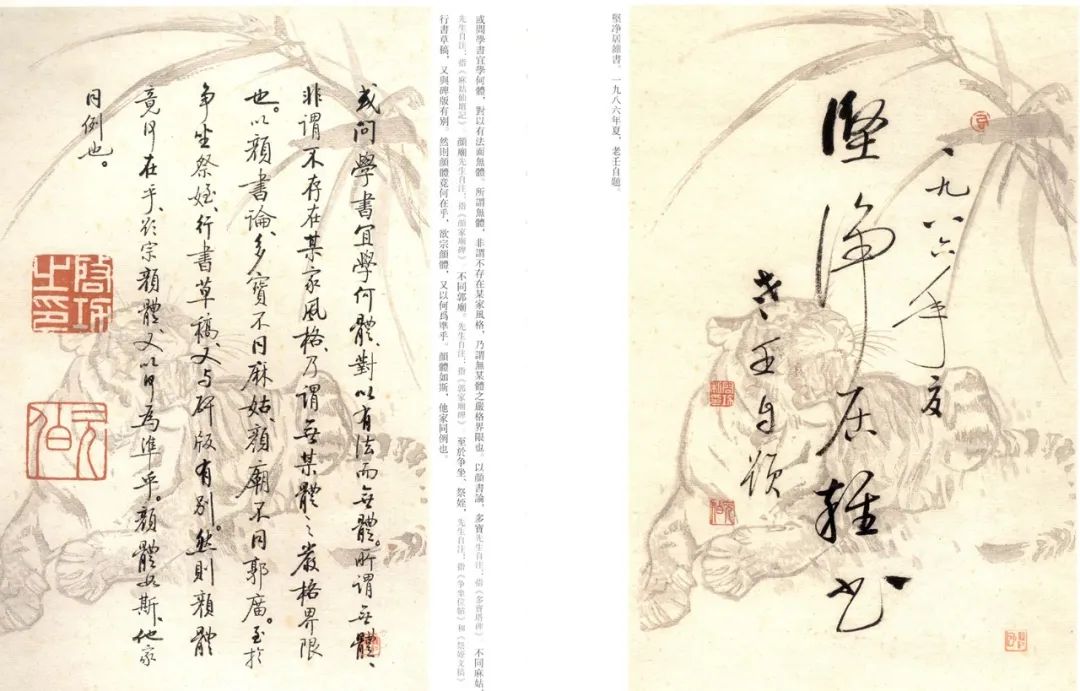 一九八六年夏
堅淨居雜書
老壬自題
堅净居雜書。一九八六年夏,老壬自題。
或問學書宜學何體,對以有法而無體。所謂無體,非謂不存在某家風格,乃謂無某體之嚴格界限也。以顏書論,多寶先生自注:指《多寶塔碑》不同麻姑,
先生自注:指《麻姑仙壇記》顏廟先生自注:指《顏家廟碑》不同郭廟。先生自注:指《郭家廟碑》至於争坐、祭姪,先生自注:指《争坐位帖》和《祭姪文稿》
行書草稿,又與碑版有别。然則顏體竟何在乎,欲宗顏體,又以何爲準乎。顏體如斯,他家同例也。
或問學書宜學何體、對以有法而無體。所謂無體、
非謂不存在某家風格、乃謂無某體之嚴格界限
也。以顏書論、多寶不同麻姑、顏廟不同郭廟。至於
争坐祭姪、行書草稿、又与碑版有別。然則顏體
竟何在乎、欲宗顏體、又以何為準乎。顏體如斯、他家
同例也。
啓功之印
元伯